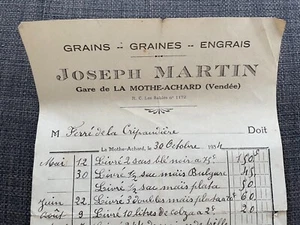 GRAINS -- GRAINES -- ENGRAIS
JOSEPH MARTIN
Gare de LA MOTHE-ACHARD (Vendée)
R. C. Les Sables n° 1170
M Ferré de la Crépaudière Doit
La Mothe-Achard, le 30 Octobre 1934
Mai 12 Livré 2 sacs blé noir à 75 150
30 Livré 1/2 sac maïs Bulgare 45
Livré 1/2 sac maïs plata 50
Juin 22 Livré 3 doubles maïs 60
Août 9 Livré 10 litres de colza à 2 20